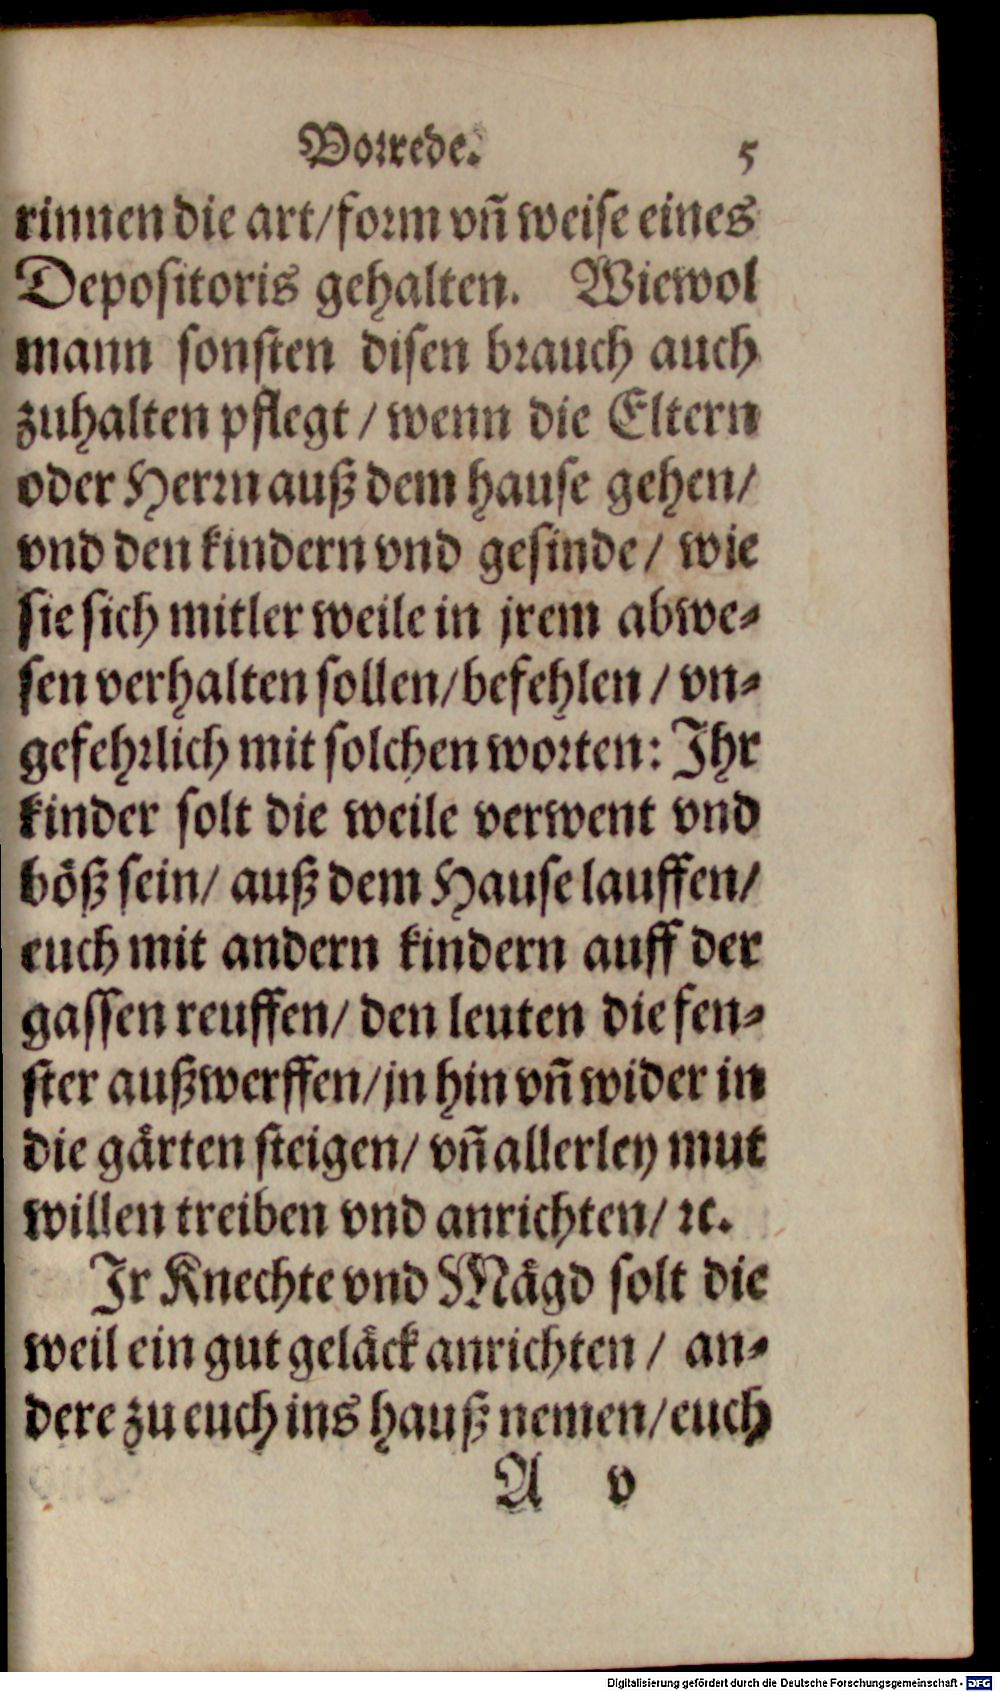 Vorrede. 5
rinnen die art/form vñ weise eines
Depositoris gehalten. Wiewol
mann sonsten disen brauch auch
zuhalten pflegt / wenn die Eltern
oder Herrn auß dem hause gehen/
vnd den kindern vnd gesinde/ wie
sie sich mitler weile in jrem abwe⸗
sen verhalten sollen/befehlen / vn⸗
gefehrlich mit solchen worten: Ihr
kinder solt die weile verwent vnd
böß sein/ auß dem Hause lauffen/
euch mit andern kindern auff der
gassen reuffen/ den leuten die fen⸗
ster außwerffen/jn hin vñ wider in
die gärten steigen/ vñ allerley mut
willen treiben vnd anrichten/ ꝛc.
Jr Knechte vnd Mägd solt die
weil ein gut geläck anrichten / an⸗
dere zu euch ins hauß nemen/euch
A v
Digitalisierung gefördert durch die Deutsche Forschungsgemeinschaft - DFG